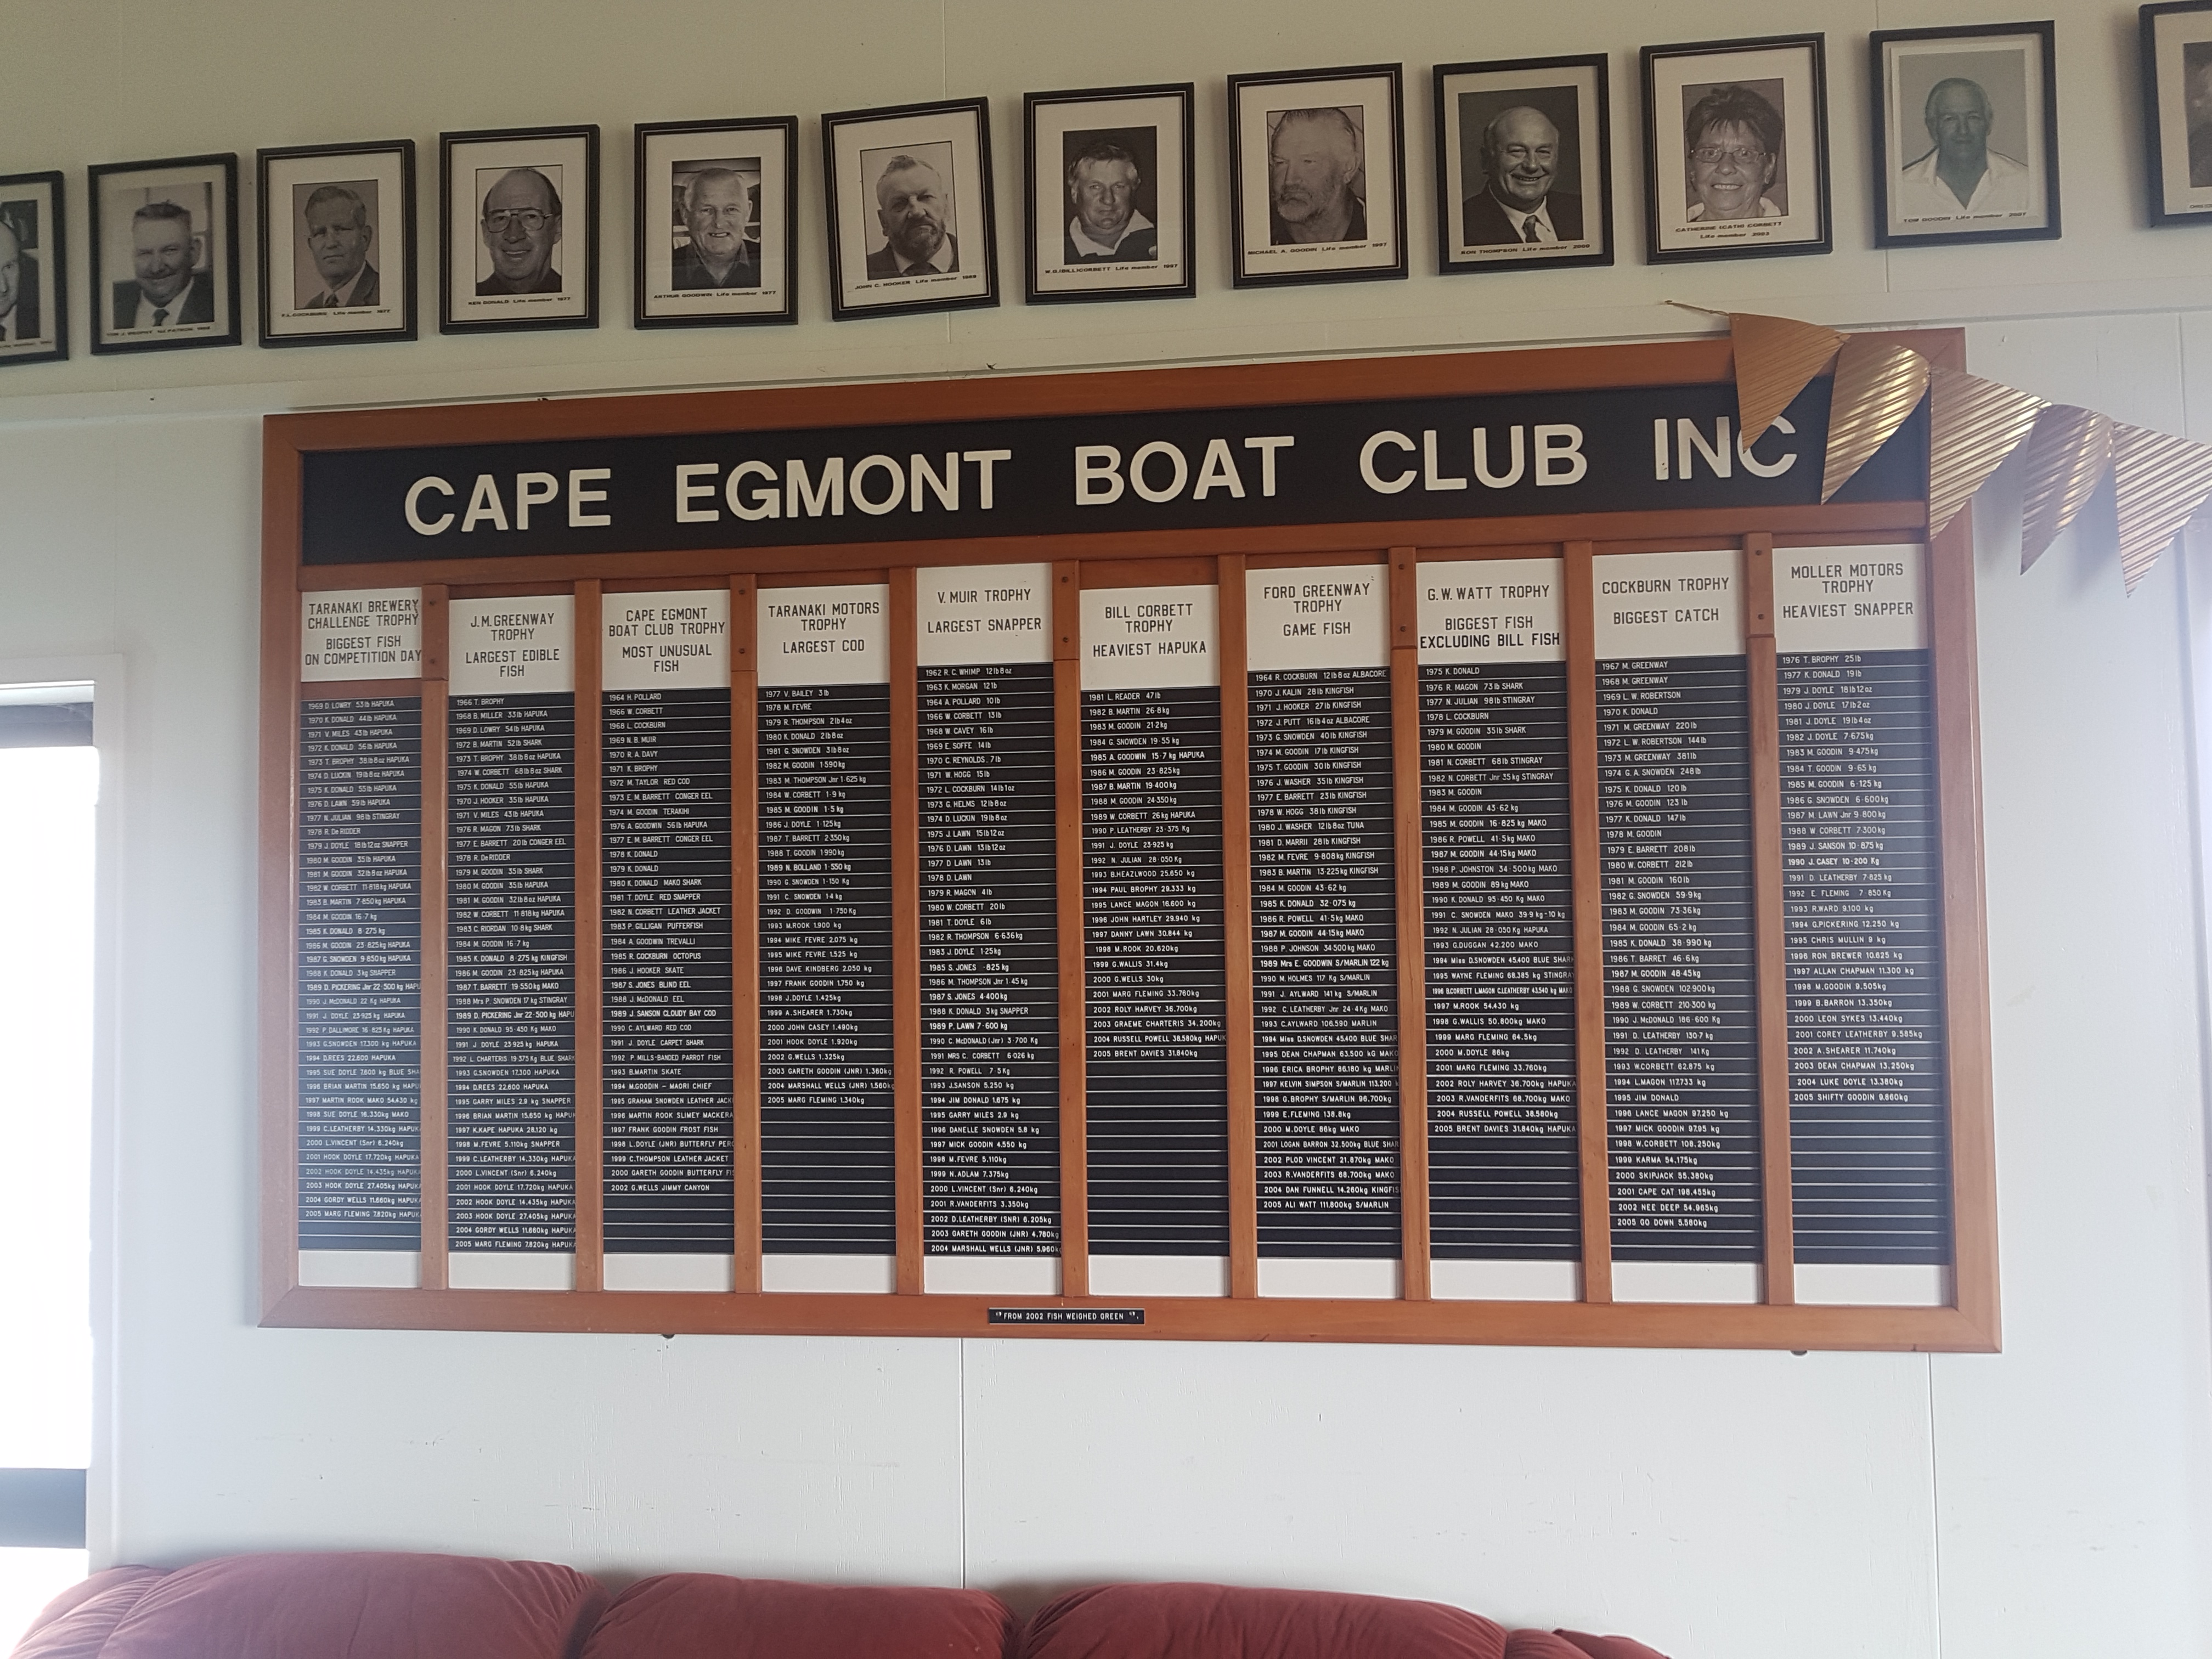 TOM J. BROPHY 1st PATRON
T.L.COCKBURN Life member 1977
KEN DONALD Life member 1977
ARTHUR GOODWIN Life member 1977
JOHN C. HOOKER Life member
W.G.(BILL)CORBETT Life member 1997
MICHAEL A. GOODIN Life member 1997
RON THOMPSON Life member 2000
CATHERINE (CATH) CORBETT
Life member 2003
TOM GOODIN Life member 2007
CAPE EGMONT BOAT CLUB INC
TARANAKI BREWERY
CHALLENGE TROPHY
BIGGEST FISH
ON COMPETITION DAY
1969 D. LOWRY 53lb HAPUKA
1970 K. DONALD 44lb HAPUKA
1971 V. MILES 43lb HAPUKA
1972 K. DONALD 56lb HAPUKA
1973 T. BROPHY 38lb8oz HAPUKA
1974 D. LUCKIN 19lb8oz HAPUKA
1975 K. DONALD 55lb HAPUKA
1976 D. LAWN 39lb HAPUKA
1977 N. JULIAN 98lb STINGRAY
1978 R. De RIDDER
1979 J. DOYLE 18lb12oz SNAPPER
1980 M. GOODIN 35lb HAPUKA
1981 M. GOODIN 32lb8oz HAPUKA
1982 W. CORBETT 11·818kg HAPUKA
1983 B. MARTIN 7·850kg HAPUKA
1984 M. GOODIN 16·7 kg
1985 K. DONALD 8·275 kg
1986 M. GOODIN 23·825kg HAPUKA
1987 G. SNOWDEN 9·850kg HAPUKA
1988 K. DONALD 3kg SNAPPER
1989 D. PICKERING Jnr 22·500 kg HAPU
1990 J. McDONALD 22 Kg HAPUKA
1991 J. DOYLE 23·925 kg HAPUKA
1992 P. DALLIMORE 16·825 Kg HAPUKA
1993 G.SNOWDEN 17.300 kg HAPUKA
1994 D.REES 22.600 HAPUKA
1995 SUE DOYLE 7.800 kg BLUE SHA
1996 BRIAN MARTIN 15.650 kg HAPU
1997 MARTIN ROOK MAKO 54.430 kg
1998 SUE DOYLE 16.330kg MAKO
1999 C.LEATHERBY 14.330kg HAPUK
2000 L.VINCENT (Snr) 6.240kg
2001 HOOK DOYLE 17.720kg HAPUKA
2002 HOOK DOYLE 14.435kg HAPUK
2003 HOOK DOYLE 27.405kg HAPUK
2004 GORDY WELLS 11.660kg HAPUK
2005 MARG FLEMING 7.820kg HAPUK
J. M. GREENWAY
TROPHY
LARGEST EDIBLE
FISH
1966 T. BROPHY
1968 B. MILLER 33lb HAPUKA
1969 D. LOWRY 54lb HAPUKA
1972 B. MARTIN 52lb SHARK
1973 T. BROPHY 38lb8oz HAPUKA
1974 W. CORBETT 68lb8oz SHARK
1975 K. DONALD 55lb HAPUKA
1970 J. HOOKER 35lb HAPUKA
1971 V. MILES 43lb HAPUKA
1976 R. MAGON 73lb SHARK
1977 E. BARRETT 20lb CONGER EEL
1978 R. DeRIDDER
1979 M. GOODIN 35lb SHARK
1980 M. GOODIN 35lb HAPUKA
1981 M. GOODIN 32lb8oz HAPUKA
1982 W. CORBETT 11·818kg HAPUKA
1983 C. RIORDAN 10·8kg SHARK
1984 M. GOODIN 16·7 kg
1985 K. DONALD 8·275 kg KINGFISH
1986 M. GOODIN 23·825 kg HAPUKA
1987 T. BARRETT 19·550kg MAKO
1988 Mrs P. SNOWDEN 17 kg STINGRAY
1989 D. PICKERING Jnr 22·500 kg HAPU
1990 K. DONALD 95·450 Kg MAKO
1991 J. DOYLE 23·925 kg HAPUKA
1992 L. CHARTERIS 19·375 Kg BLUE SHAR
1993 G.SNOWDEN 17.300 HAPUKA
1994 D.REES 22.600 HAPUKA
1995 GARRY MILES 2.9 kg SNAPPER
1996 BRIAN MARTIN 15.650 kg HAPUK
1997 K.KAPE HAPUKA 28.120 kg
1998 M.FEVRE 5.110kg SNAPPER
1999 C.LEATHERBY 14.330kg HAPUKA
2000 L.VINCENT (Snr) 6.240kg
2001 HOOK DOYLE 17.720kg HAPUKA
2002 HOOK DOYLE 14.435kg HAPUK
2003 HOOK DOYLE 27.405kg HAPUK
2004 GORDY WELLS 11.660kg HAPUK
2005 MARG FLEMING 7.820kg HAPUK
CAPE EGMONT
BOAT CLUB TROPHY
MOST UNUSUAL
FISH
1964 H. POLLARD
1966 W. CORBETT
1968 L. COCKBURN
1969 N. B. MUIR
1970 R. A. DAVY
1971 K. BROPHY
1972 M. TAYLOR RED COD
1973 E. M. BARRETT CONGER EEL
1974 M. GOODIN TERAKIHI
1976 A. GOODWIN 56lb HAPUKA
1977 E. M. BARRETT CONGER EEL
1978 K. DONALD
1979 K. DONALD
1980 K. DONALD MAKO SHARK
1981 T. DOYLE RED SNAPPER
1982 N. CORBETT LEATHER JACKET
1983 P. GILLIGAN PUFFERFISH
1984 A. GOODWIN TREVALLI
1985 R. COCKBURN OCTOPUS
1986 J. HOOKER SKATE
1987 S. JONES BLIND EEL
1988 J. McDONALD EEL
1989 J. SANSON CLOUDY BAY COD
1990 C. AYLWARD RED COD
1991 J. DOYLE CARPET SHARK
1992 P. MILLS-BANDED PARROT FISH
1993 B.MARTIN SKATE
1994 M.GOODIN - MAORI CHIEF
1995 GRAHAM SNOWDEN LEATHER JACK
1996 MARTIN ROOK SLIMEY MACKERA
1997 FRANK GOODIN FROST FISH
1998 L.DOYLE (JNR) BUTTERFLY PERC
1999 C.THOMPSON LEATHER JACKET
2000 GARETH GOODIN BUTTERFLY FI
2002 G.WELLS JIMMY CANYON
TARANAKI MOTORS
TROPHY
LARGEST COD
1977 V. BAILEY 3lb
1978 M. FEVRE
1979 R. THOMPSON 2lb4oz
1980 K. DONALD 2lb8oz
1981 G. SNOWDEN 3lb8oz
1982 M. GOODIN 1·590kg
1983 M. THOMPSON Jnr 1·625kg
1984 W. CORBETT 1·9 kg
1985 M. GOODIN 1·5 kg
1986 J. DOYLE 1·125kg
1987 T. BARRETT 2·350kg
1988 T. GOODIN 1·990kg
1989 N. BOLLAND 1·550 kg
1990 G. SNOWDEN 1·150 Kg
1991 C. SNOWDEN 1·4 kg
1992 D. GOODWIN 1·750 Kg
1993 M.ROOK 1.900 kg
1994 MIKE FEVRE 2.075 kg
1995 MIKE FEVRE 1.525 kg
1996 DAVE KINDBERG 2.050 kg
1997 FRANK GOODIN 1.750 kg
1998 J.DOYLE 1.425kg
1999 A.SHEARER 1.730kg
2000 JOHN CASEY 1.490kg
2001 HOOK DOYLE 1.920kg
2002 G.WELLS 1.325kg
2003 GARETH GOODIN (JNR) 1.360kg
2004 MARSHALL WELLS (JNR) 1.560kg
2005 MARG FLEMING 1.340kg
V. MUIR TROPHY
LARGEST SNAPPER
1962 R. C. WHIMP 12lb8oz
1963 K. MORGAN 12lb
1964 A. POLLARD 10lb
1966 W. CORBETT 13lb
1968 W. CAVEY 16lb
1969 E. SOFFE 14lb
1970 C. REYNOLDS 7lb
1971 W. HOGG 15lb
1972 L. COCKBURN 14lb1oz
1973 G. HELMS 12lb8oz
1974 D. LUCKIN 19lb8oz
1975 J. LAWN 15lb12oz
1976 D. LAWN 13lb12oz
1977 D. LAWN 13lb
1978 D. LAWN
1979 R. MAGON 4lb
1980 W. CORBETT 20lb
1981 T. DOYLE 6lb
1982 R. THOMPSON 6·636kg
1983 J. DOYLE 1·25kg
1985 S. JONES ·825 kg
1986 M. THOMPSON Jnr 1·45 kg
1987 S. JONES 4·400kg
1988 K. DONALD 3kg SNAPPER
1989 P. LAWN 7·600 kg
1990 C. McDONALD(Jnr) 3·700 Kg
1991 MRS C. CORBETT 6·026 kg
1992 R. POWELL 7·5 Kg
1993 J.SANSON 5.250 kg
1994 JIM DONALD 1.675 kg
1995 GARRY MILES 2.9 kg
1996 DANELLE SNOWDEN 5.8 kg
1997 MICK GOODIN 4.550 kg
1998 M.FEVRE 5.110kg
1999 N.ADLAM 7.375kg
2000 L.VINCENT (Snr) 6.240kg
2001 R.VANDERFITS 3.350kg
2002 D.LEATHERBY (SNR) 6.205kg
2003 GARETH GOODIN (JNR) 4.780kg
2004 MARSHALL WELLS (JNR) 5.960kg
BILL CORBETT
TROPHY
HEAVIEST HAPUKA
1981 L. READER 47lb
1982 B. MARTIN 26·8kg
1983 M. GOODIN 21·2kg
1984 G. SNOWDEN 19·55 kg
1985 A. GOODWIN 15·7 kg HAPUKA
1986 M. GOODIN 23·825kg
1987 B. MARTIN 19·400kg
1988 M. GOODIN 24·350kg
1989 W. CORBETT 26 kg HAPUKA
1990 P. LEATHERBY 23·375 Kg
1991 J. DOYLE 23·925 kg
1992 N. JULIAN 28·050 Kg
1993 B.HEAZLWOOD 25.650 kg
1994 PAUL BROPHY 29.333 kg
1995 LANCE MAGON 16.600 kg
1996 JOHN HARTLEY 29.940 kg
1997 DANNY LAWN 30.844 kg
1998 M.ROOK 20.620kg
1999 G.WALLIS 31.4kg
2000 G.WELLS 30kg
2001 MARG FLEMING 33.760kg
2002 ROLY HARVEY 36.700kg
2003 GRAEME CHARTERIS 34.200kg
2004 RUSSELL POWELL 38.580kg HAPUK
2005 BRENT DAVIES 31.840kg
FORD GREENWAY
TROPHY
GAME FISH
1964 R. COCKBURN 12lb8oz ALBACORE
1970 J. KALIN 28lb KINGFISH
1971 J. HOOKER 27lb KINGFISH
1972 J. PUTT 16lb4oz ALBACORE
1973 G. SNOWDEN 40lb KINGFISH
1974 M. GOODIN 17lb KINGFISH
1975 T. GOODIN 30lb KINGFISH
1976 J. WASHER 35lb KINGFISH
1977 E. BARRETT 23lb KINGFISH
1978 W. HOGG 38lb KINGFISH
1980 J. WASHER 12lb8oz TUNA
1981 D. MARRII 28lb KINGFISH
1982 M. FEVRE 9·808kg KINGFISH
1983 B. MARTIN 13·225kg KINGFISH
1984 M. GOODIN 43·62 kg
1985 K. DONALD 32·075 kg
1986 R. POWELL 41·5kg MAKO
1987 M. GOODIN 44·15kg MAKO
1988 P. JOHNSON 34·500kg MAKO
1989 Mrs E. GOODWIN S/MARLIN 122 kg
1990 M. HOLMES 117 Kg S/MARLIN
1991 J. AYLWARD 141 kg S/MARLIN
1992 C. LEATHERBY Jnr 24·4Kg MAKO
1993 C.AYLWARD 106.590 MARLIN
1994 Miss D.SNOWDEN 45.400 BLUE SHAR
1995 DEAN CHAPMAN 63.500 kG MAKO
1996 ERICA BROPHY 86.180 kg MARLI
1997 KELVIN SIMPSON S/MARLIN 113.200
1998 G.BROPHY S/MARLIN 96.700kg
1999 E.FLEMING 138.8kg
2000 M.DOYLE 86kg MAKO
2001 LOGAN BARRON 32.500kg BLUE SHAR
2002 PLOD VINCENT 21.870kg MAKO
2003 R.VANDERFITS 68.700kg MAKO
2004 DAN FUNNELL 14.260kg KINGFIS
2005 ALI WATT 111.800kg S/MARLIN
G. W. WATT TROPHY
BIGGEST FISH
EXCLUDING BILL FISH
1975 K. DONALD
1976 R. MAGON 73lb SHARK
1977 N. JULIAN 98lb STINGRAY
1978 L. COCKBURN
1979 M. GOODIN 35lb SHARK
1980 M. GOODIN
1981 N. CORBETT 68lb STINGRAY
1982 N. CORBETT Jnr 35kg STINGRAY
1983 M. GOODIN
1984 M. GOODIN 43·62 kg
1985 M. GOODIN 16·825 kg MAKO
1986 R. POWELL 41·5kg MAKO
1987 M. GOODIN 44·15kg MAKO
1988 P. JOHNSTON 34·500kg MAKO
1989 M. GOODIN 89kg MAKO
1990 K. DONALD 95·450 Kg MAKO
1991 C. SNOWDEN MAKO 39·9 kg-10 kg
1992 N. JULIAN 28·050 Kg HAPUKA
1993 G.DUGGAN 42.200 MAKO
1994 Miss D.SNOWDEN 45.400 BLUE SHAR
1995 WAYNE FLEMING 68.385 kg STINGRA
1996 B.CORBETT L.MAGON C.LEATHERBY 43.540 kg MAK
1997 M.ROOK 54.430 kg
1998 G.WALLIS 50.800kg MAKO
1999 MARG FLEMING 64.5kg
2000 M.DOYLE 86kg
2001 MARG FLEMING 33.760kg
2002 ROLY HARVEY 36.700kg HAPUKA
2003 R.VANDERFITS 68.700kg MAKO
2004 RUSSELL POWELL 38.580kg
2005 BRENT DAVIES 31.840kg HAPUK
COCKBURN TROPHY
BIGGEST CATCH
1967 M. GREENWAY
1968 M. GREENWAY
1969 L. W. ROBERTSON
1970 K. DONALD
1971 M. GREENWAY 220lb
1972 L. W. ROBERTSON 144lb
1973 M. GREENWAY 381lb
1974 G. A. SNOWDEN 248lb
1975 K. DONALD 120lb
1976 M. GOODIN 123 lb
1977 K. DONALD 147lb
1978 M. GOODIN
1979 E. BARRETT 208lb
1980 W. CORBETT 212lb
1981 M. GOODIN 160lb
1982 G. SNOWDEN 59·9kg
1983 M. GOODIN 73·36kg
1984 M. GOODIN 65·2 kg
1985 K. DONALD 38·990 kg
1986 T. BARRET 46·6kg
1987 M. GOODIN 48·45kg
1988 G. SNOWDEN 102·900kg
1989 W. CORBETT 210·300 kg
1990 J. McDONALD 186·600 Kg
1991 D. LEATHERBY 130·7 kg
1992 D. LEATHERBY 141Kg
1993 W.CORBETT 62.875 kg
1994 L.MAGON 117.733 kg
1995 JIM DONALD
1996 LANCE MAGON 97.250 kg
1997 MICK GOODIN 97.95 kg
1998 W.CORBETT 108.250kg
1999 KARMA 54.175kg
2000 SKIPJACK 55.380kg
2001 CAPE CAT 198.455kg
2002 NEE DEEP 54.965kg
2005 GO DOWN 5.560kg
MOLLER MOTORS
TROPHY
HEAVIEST SNAPPER
1976 T. BROPHY 25lb
1977 K. DONALD 19lb
1979 J. DOYLE 18lb12oz
1980 J. DOYLE 17lb2oz
1981 J. DOYLE 19lb4oz
1982 J. DOYLE 7·675kg
1983 M. GOODIN 9·475kg
1984 T. GOODIN 9·65 kg
1985 M. GOODIN 6·125 kg
1986 G. SNOWDEN 6·600kg
1987 M. LAWN Jnr 9·800kg
1988 W. CORBETT 7·300kg
1989 J. SANSON 10·875 kg
1990 J. CASEY 10·200 Kg
1991 D. LEATHERBY 7·825 kg
1992 E. FLEMING 7·850 Kg
1993 R.WARD 9.100 kg
1994 G.PICKERING 12.250 kg
1995 CHRIS MULLIN 9 kg
1996 RON BREWER 10.625 kg
1997 ALLAN CHAPMAN 11.300 kg
1998 M.GOODIN 9.505kg
1999 B.BARRON 13.350kg
2000 LEON SYKES 13.440kg
2001 COREY LEATHERBY 9.585kg
2002 A.SHEARER 11.740kg
2003 DEAN CHAPMAN 13.250kg
2004 LUKE DOYLE 13.380kg
2005 SHIFTY GOODIN 9.860kg
"FROM 2002 FISH WEIGHED GREEN"